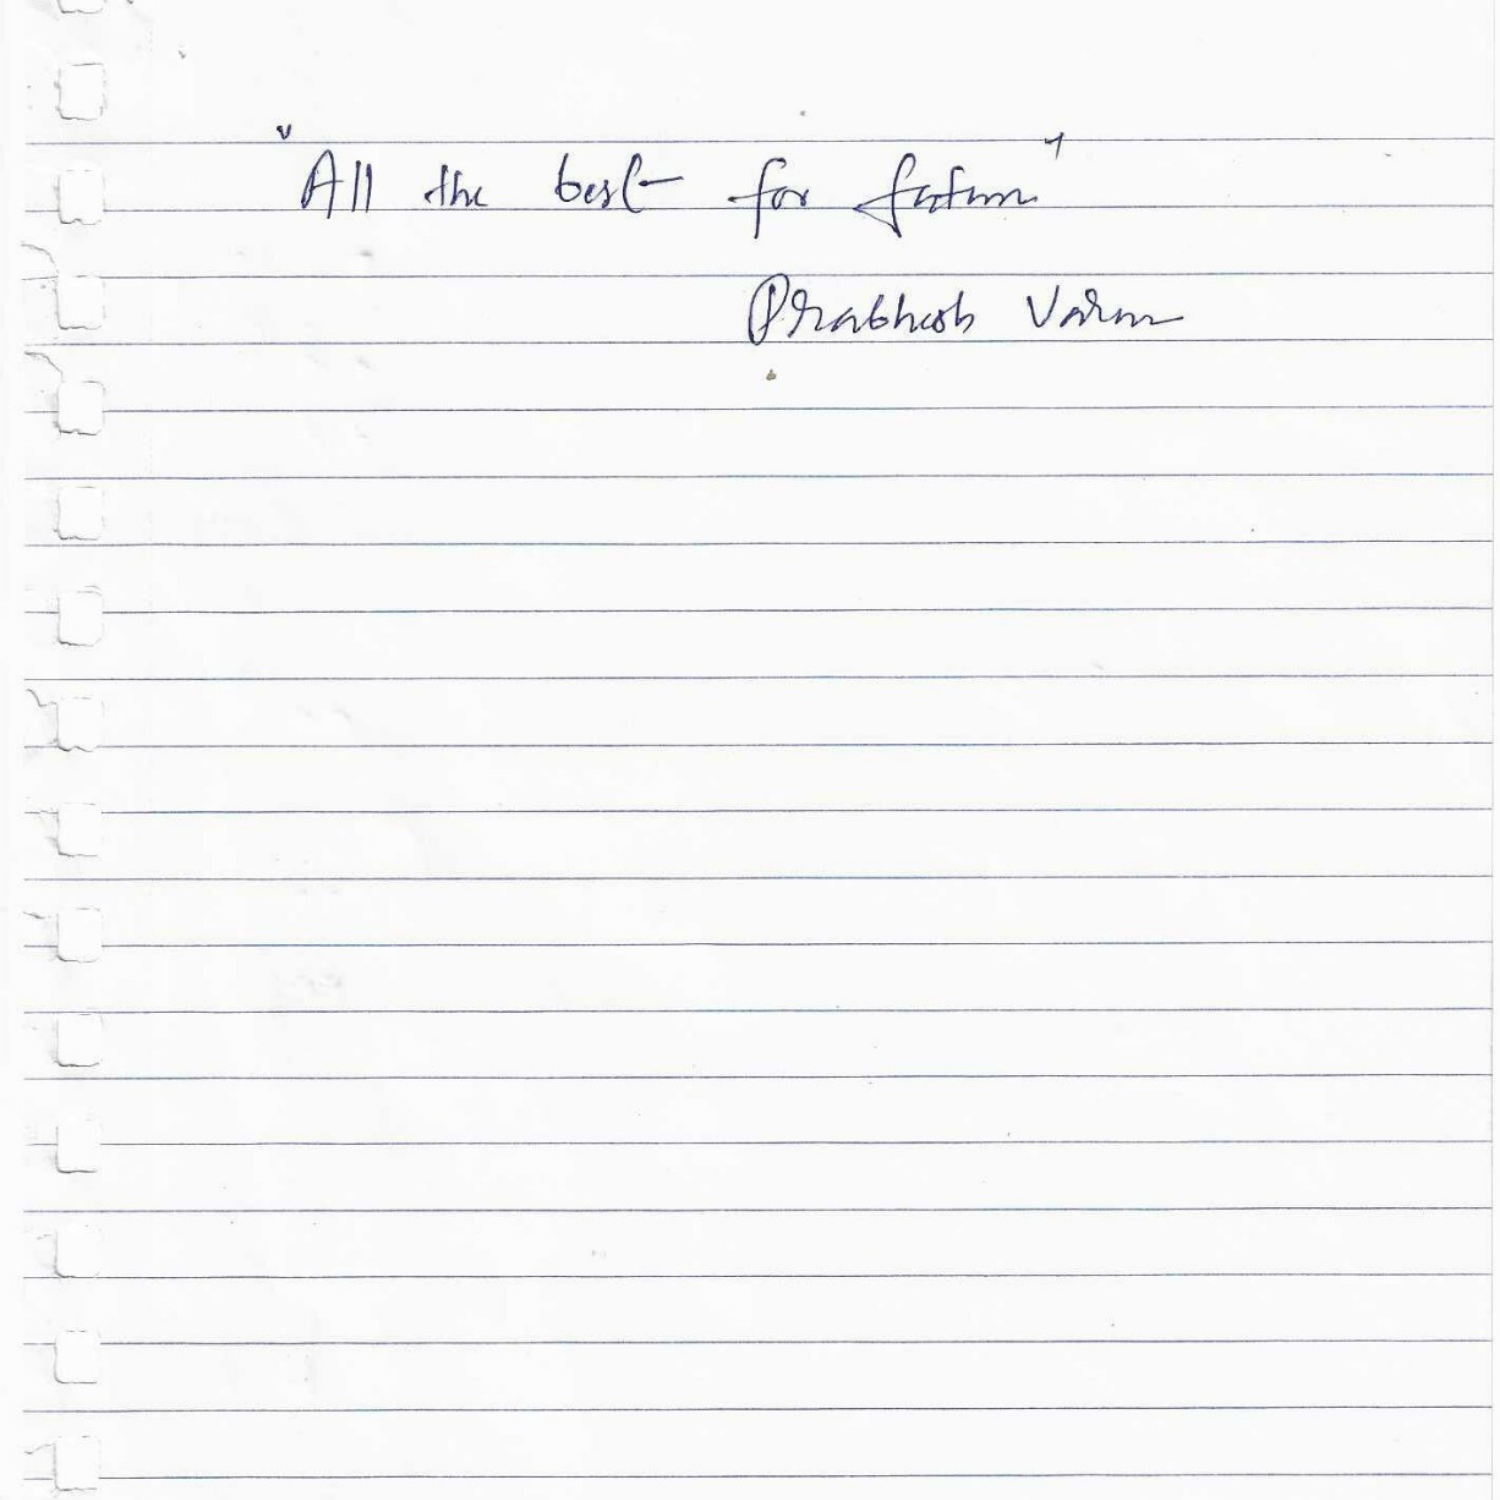 "All the best for future"
Prabhash